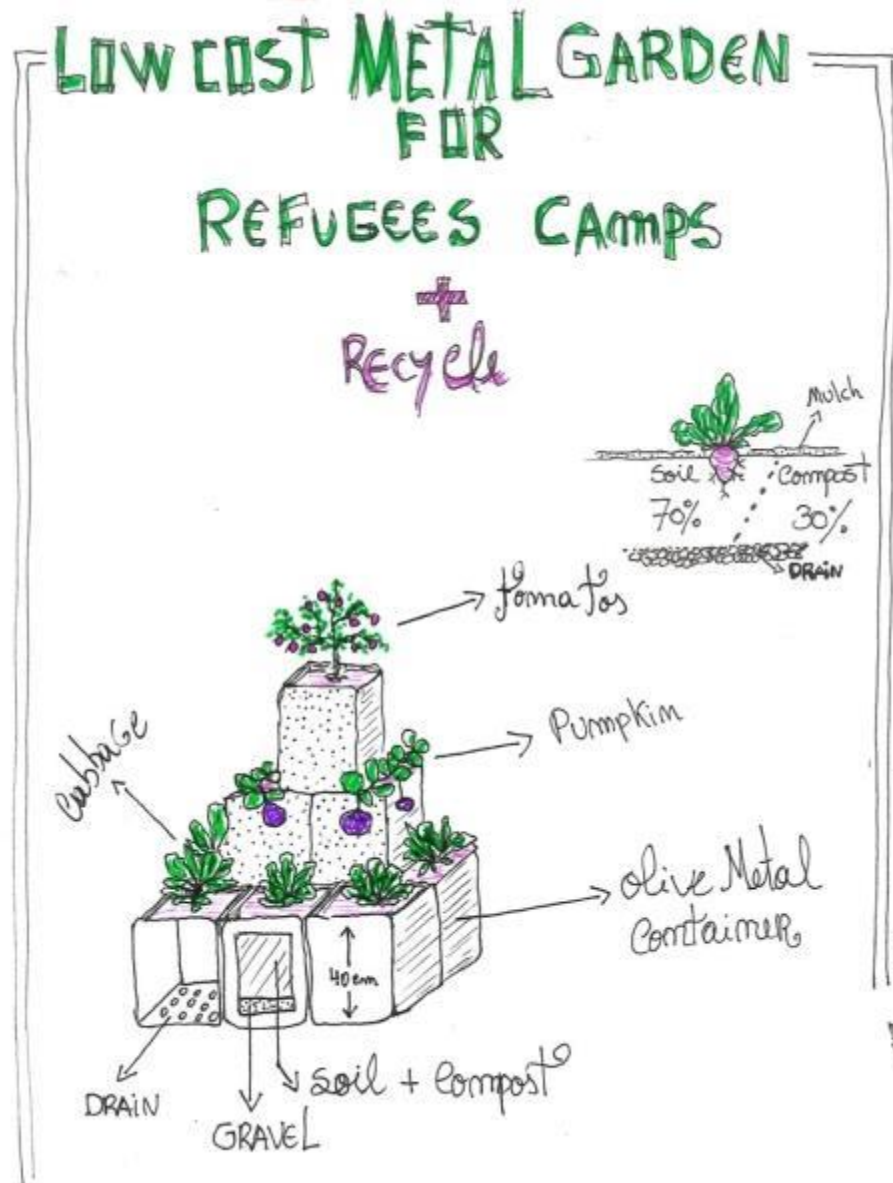 LOW COST METAL GARDEN
FOR
REFUGEES CAMPS
+
Recycle
Mulch
Soil
Compost
70%
30%
DRAIN
tomatos
Pumpkin
Cabbage
olive Metal
Container
40cm
DRAIN
soil + Compost
GRAVEL